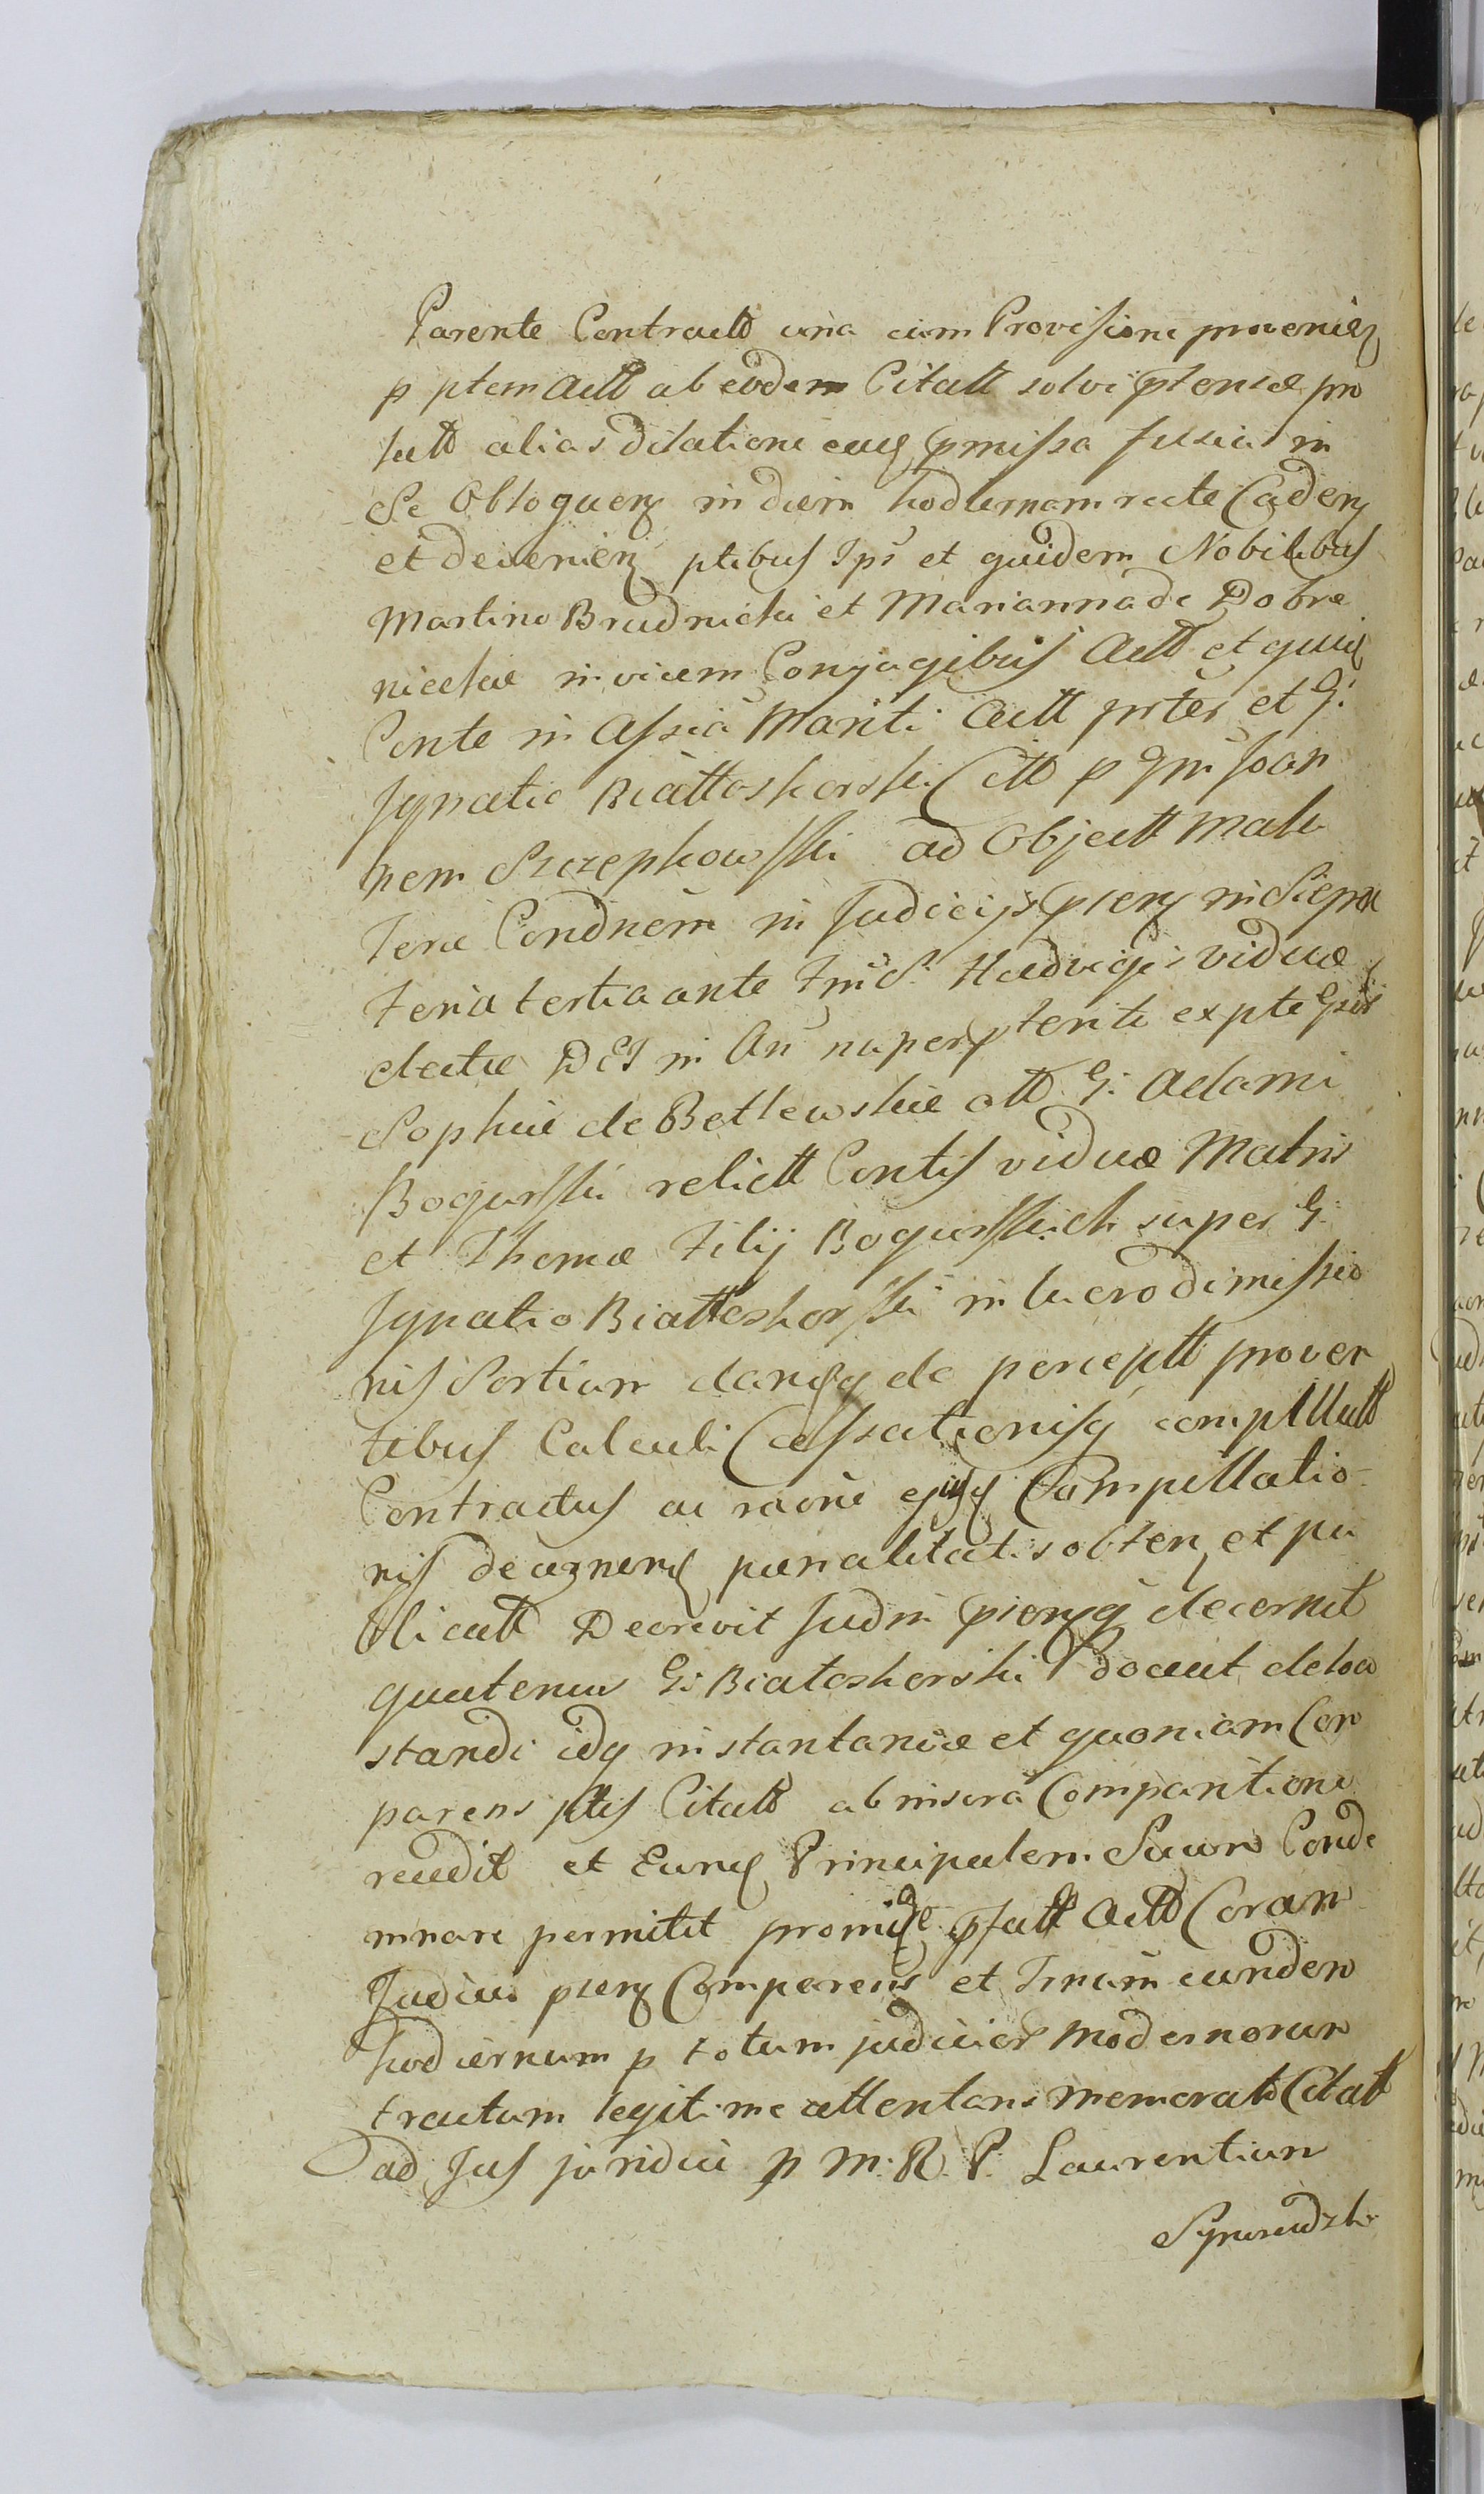 Parente Contractt una cum Provisione provenien
p ptem Actt ab eodem Citatt solvi ptensae pro
latt alias dilatione eaq pmissa fusius in
se Obloquen in diem hodiernam recte Caden
et devenien ptibus Ips et quidem Nobilibus
Martino Brudnicki et Marianna de Dobre
nieckie invicem Conjugibus Actt et quid
Conte in Assia Mariti Actt prter et G:
Ignatio Białłoskorski Citt p Gm Joan
nem Szczepkowski ad Objectt Male
tenae Condnem in Judicijs pten in Siepra
feria tertia ante Fm S: Hedvigis viduae
electae DEI in An nuper pterite ex pte Gsis
Sophiae de Betlewskie ott G: Adami
Bogurski relictt Contis viduae Matris
et Thomae Filij Bogurskich super G:
Ignatio Białłoskorski in lucro dimissio
nis Sortium danq de perceptt proven
tibus Calculi Cassationisq compllatt
Contractus ac raone ejusq Compellatio
nis decernen paenalitatis obten et pu
blicatt Decrevit Judm psensq decernit
quatenus G: Białoskorski doceat de loco
standi idq instantanee et quoniam Com
parens ptis Citatt ab missura Comparitione
recedit et Eunq Principalem Suum Conde
mnare permitit proinde pfatt Actt Coram
Judicio psen Comparens et Trnum eundem
hodiernum p totum judicior modernorum
tractum legitime attentans memoratt Citatt
ad Jus juridice p M. R. P. Laurentium